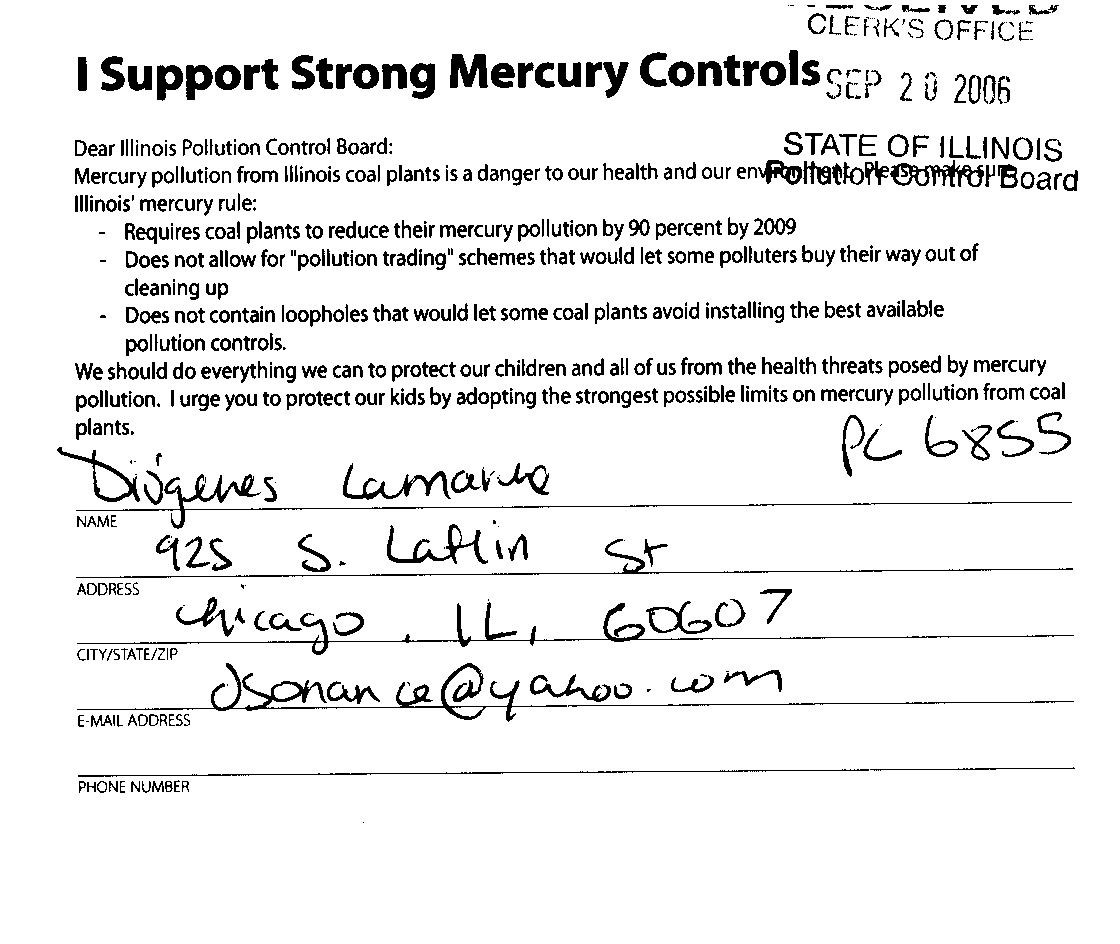 RECEIVED
CLERK'S OFFICE
I Support Strong Mercury Controls
SEP 20 2006
STATE OF ILLINOIS
Pollution Control Board
Dear Illinois Pollution Control Board:
Mercury pollution from Illinois coal plants is a danger to our health and our environment. Please make sure
Illinois' mercury rule:
- Requires coal plants to reduce their mercury pollution by 90 percent by 2009
- Does not allow for "pollution trading" schemes that would let some polluters buy their way out of
cleaning up
- Does not contain loopholes that would let some coal plants avoid installing the best available
pollution controls.
We should do everything we can to protect our children and all of us from the health threats posed by mercury
pollution. I urge you to protect our kids by adopting the strongest possible limits on mercury pollution from coal
plants.
PC 6855
Diógenes
NAME
925 S. Laflin St
ADDRESS
Chicago, IL, 60607
CITY/STATE/ZIP
dsonance@yahoo.com
E-MAIL ADDRESS
PHONE NUMBER